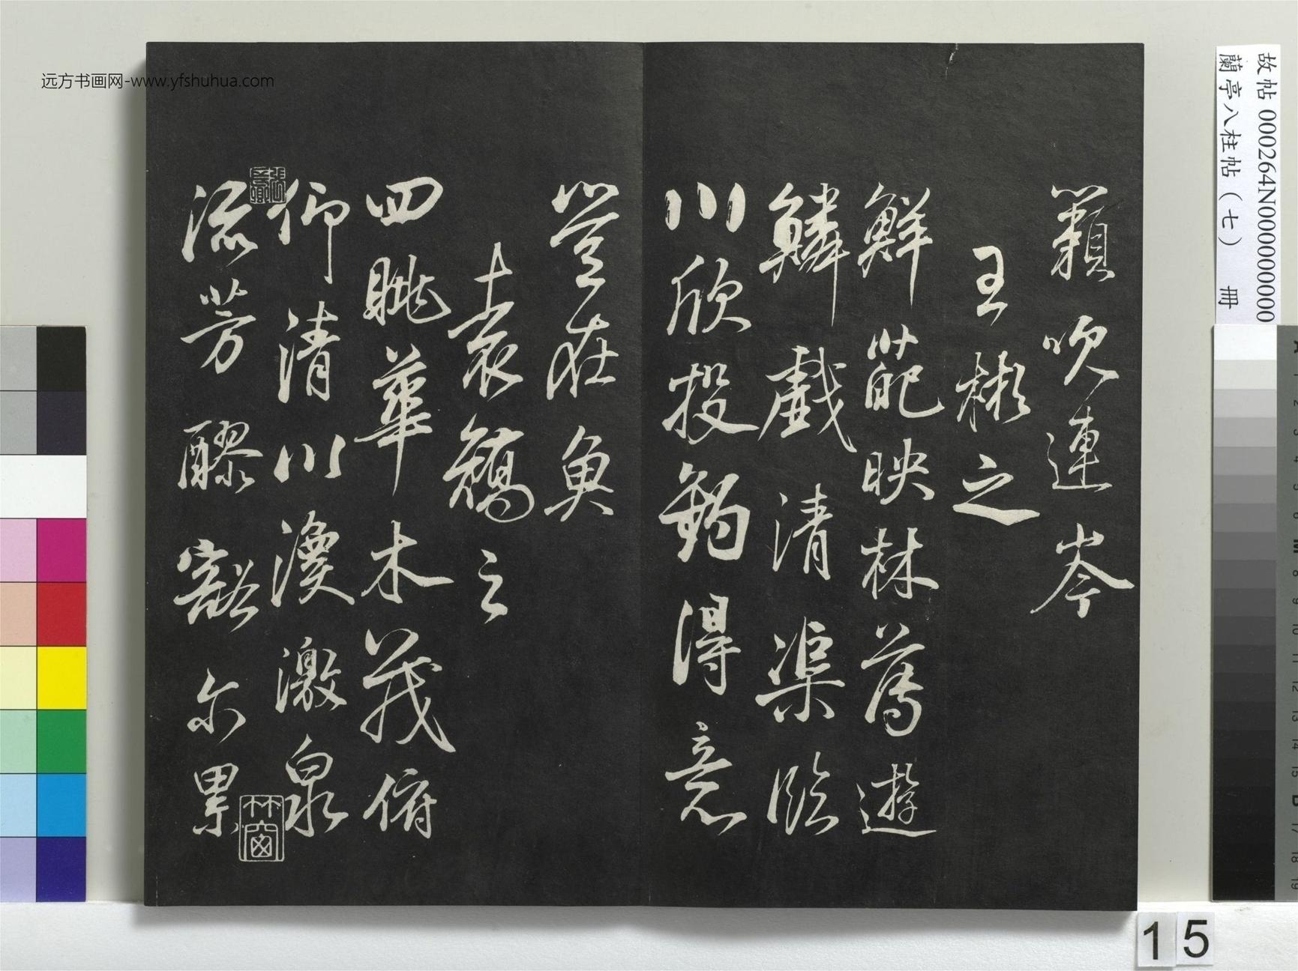 籟吹連岑
王彬之
鮮葩映林薄遊
鱗戲清渠臨
川欣投釣得意
豈在魚
袁嶠之
四眺華木茂俯
仰清川渙激泉
流芳醪豁尔累
竹窗
远方书画网-www.yfshuhua.com
故帖 000264N000000000
蘭亭八柱帖（七） 冊
15